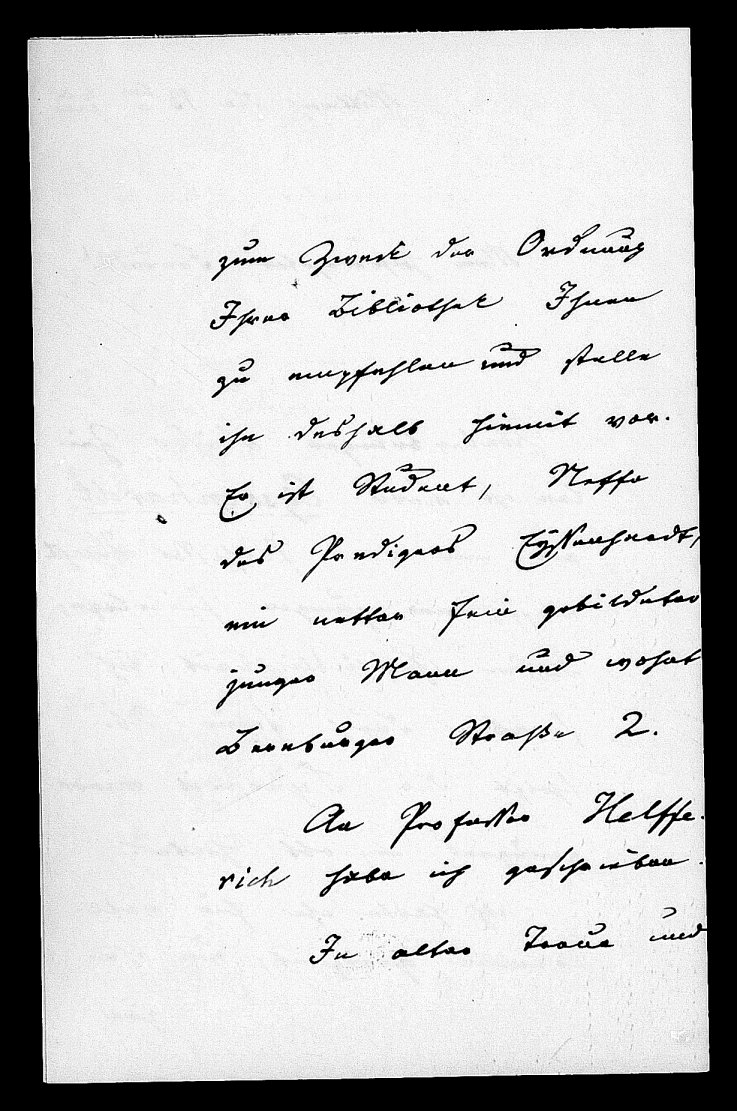 zum Zweck der Ordnung
Ihrer Bibliothek Ihnen
zu empfehlen und stelle
ihn deshalb hiemit vor.
Er ist Student, Neffe
des Predigers Eyssenhardt,
ein netter fein gebildeter
junger Mann und wohnt
Bernburger Straße 2.
An Professor Helffe-
rich habe ich geschrieben.
In alter Treue und